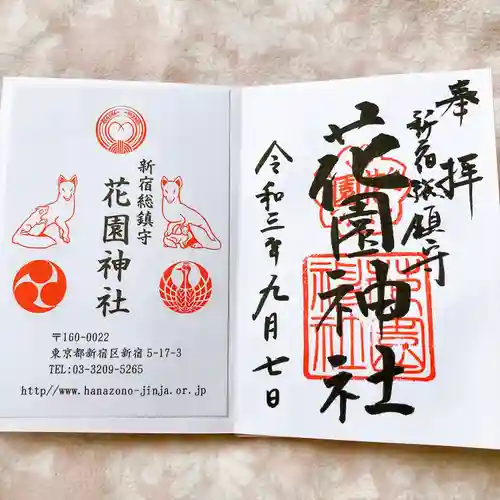 新宿総鎮守
花園神社
〒160-0022
東京都新宿区新宿5-17-3
TEL:03-3209-5265
http://www.hanazono-jinja.or.jp
奉拝
新宿総鎮守
花園神社
令和三年九月七日